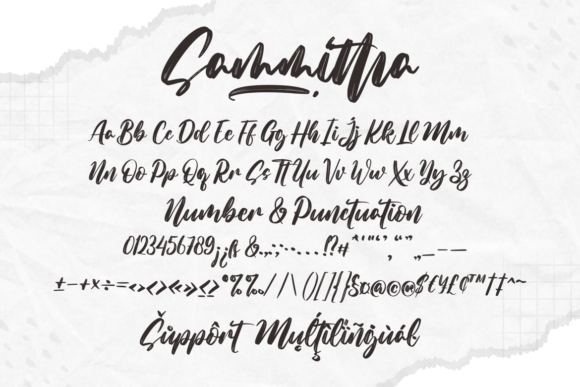 Sammitha
Aa Bb Cc Dd Ee Ff Gg Hh Ii Jj Kk Ll Mm
Nn Oo Pp Qq Rr Ss Tt Uu Vv Ww Xx Yy Zz
Number & Punctuation
0123456789¡¿ß &.,:;-…!?# *'"‘’“”‚„_–—
±−+×÷=<><>«»≤≥°%‰/|\()[]{}§¤@©®$€¥£¢™†‡^~
Šůppôrt Mulţílïñġùál